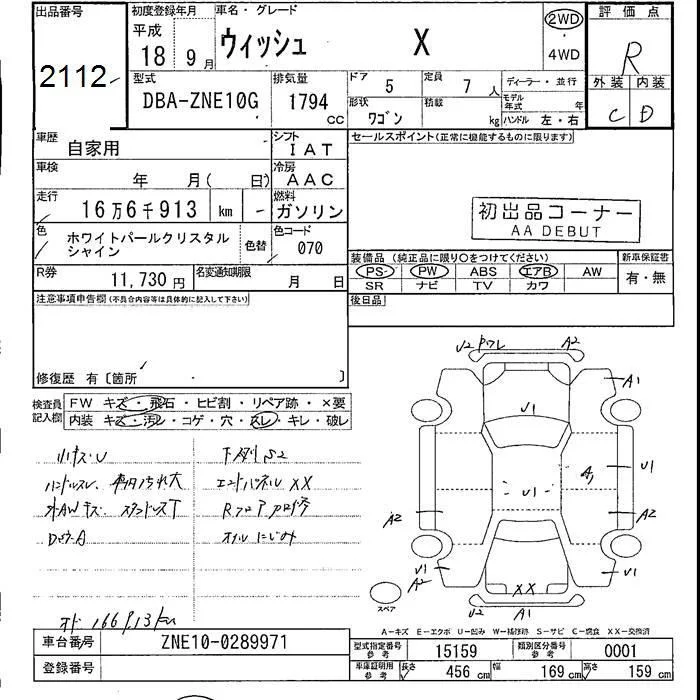 出品番号
2112
初度登録年月
平成
18年9月
車名・グレード
ウィッシュ X
2WD
・
4WD
評価点
R
外装 内装
C D
型式
DBA-ZNE10G
排気量
1794
CC
ドア
5
定員
7人
形状
ワゴン
積載
kg
ディーラー・並行
モデル年式
年
ハンドル 左・右
車歴
自家用
シフト
IAT
車検
年 月( 日)
冷房
AAC
走行
16万6千913 km
燃料
ガソリン
色
ホワイトパールクリスタル
シャイン
色替
色コード
070
R券
11,730円
名変通知期限
月 日
セールスポイント(正常に機能するものに限ります)
初出品コーナー
AA DEBUT
装備品 (純正品に限り○をつけてください)
PS PW ABS エアB AW
SR ナビ TV カワ
新車保証書
有・無
注意事項申告欄(不具合内容等は具体的に記入して下さい)
後日品
修復歴 有〔箇所 〕
検査員記入欄
FW キズ・飛石・ヒビ割・リペア跡・×要
内装 キズ・汚レ・コゲ・穴・スレ・キレ・破レ
小キズ・U
ハンドルスレ 車内汚れ大
外AWキズ スタッドレスT
下廻りS2
エンドパネルXX
オイルにじみ
U2 ワレ A2
A1
U1
A
U1
U1
A2
A2
U1
A2
U1
XX
U2 A1
スペア
A-キズ E-エクボ U-凹み W-補修跡 S-サビ C-腐食 XX-交換済
車台番号
ZNE10-0289971
登録番号
型式指定番号
参考
15159
類別区分番号
参考
0001
車庫証明用
参考
長さ
456 cm
幅
169 cm
高さ
159 cm